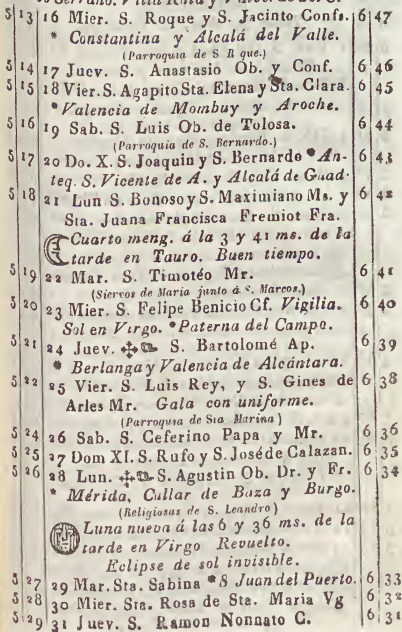 5 13 16 Mier. S. Roque y S. Jacinto Confs. 6 47
* Constantina y Alcalá del Valle.
(Parroquia de S R que.)
5 14 17 Juev. S. Anastasio Ob. y Conf. 6 46
5 15 18 Vier. S. Agapito Sta. Elena y Sta. Clara. 6 45
* Valencia de Mombuy y Aroche.
5 16 19 Sab. S. Luis Ob. de Tolosa. 6 44
(Parroquia de S. Bernardo.)
5 17 20 Do. X. S. Joaquin y S. Bernardo * An- 6 43
teq. S. Vicente de A. y Alcalá de Guad.
5 18 21 Lun S. Bonoso y S. Maximiano Ms. y 6 42
Sta. Juana Francisca Fremiot Fra.
Cuarto meng. á la 3 y 41 ms. de la
tarde en Tauro. Buen tiempo.
5 19 22 Mar. S. Timotéo Mr. 6 41
(Siervos de Maria junto á S. Marcos.)
5 20 23 Mier. S. Felipe Benicio Cf. Vigilia. 6 40
Sol en Virgo. * Paterna del Campo.
5 21 24 Juev. S. Bartolomé Ap. 6 39
* Berlanga y Valencia de Alcántara.
5 22 25 Vier. S. Luis Rey, y S. Gines de 6 38
Arles Mr. Gala con uniforme.
(Parroquia de Sta Marina)
5 24 26 Sab. S. Ceferino Papa y Mr. 6 36
5 25 27 Dom XI. S. Rufo y S. José de Calazan. 6 35
5 26 28 Lun. S. Agustin Ob. Dr. y Fr. 6 34
* Mérida, Cullar de Baza y Burgo.
(Religiosas de S. Leandro)
Luna nueva á las 6 y 36 ms. de la
tarde en Virgo Revuelto.
Eclipse de sol invisible.
5 27 29 Mar. Sta. Sabina * S Juan del Puerto. 6 33
5 28 30 Mier. Sta. Rosa de Sta. Maria Vg 6 32
5 29 31 Juev. S. Ramon Nonnato C. 6 31